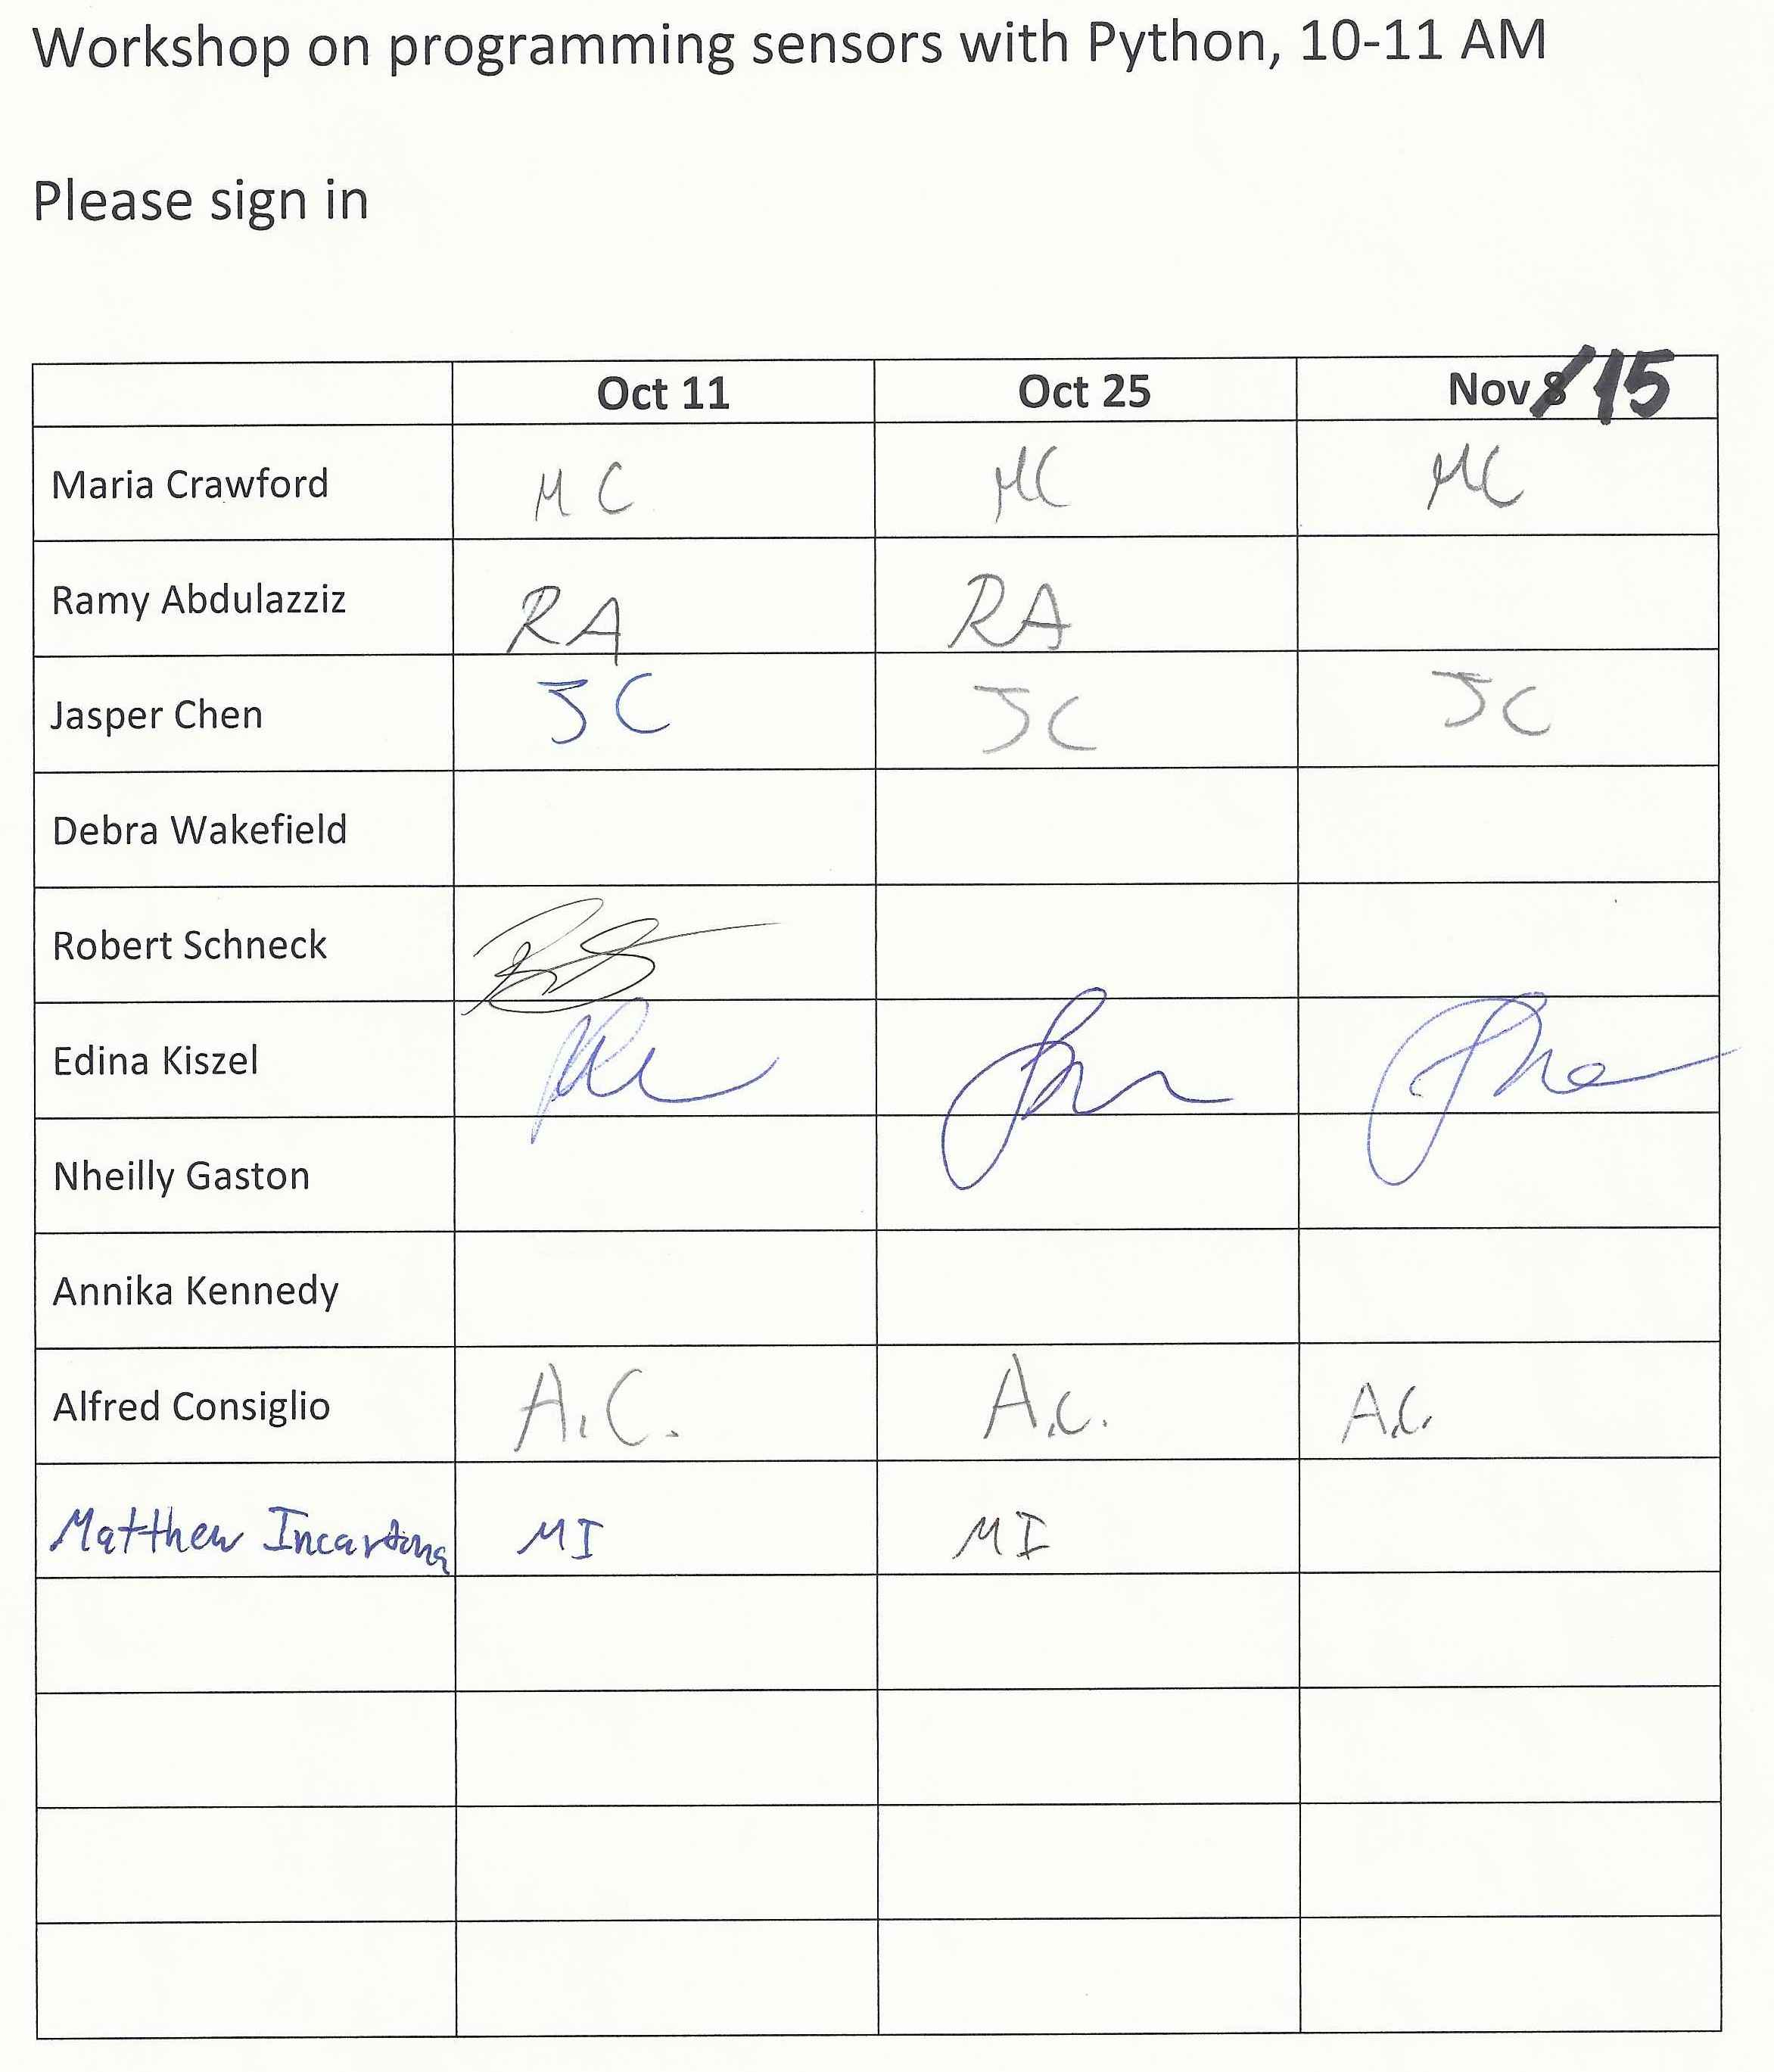 Workshop on programming sensors with Python, 10-11 AM
Please sign in
Oct 11 Oct 25 Nov 8 15
Maria Crawford MC MC MC
Ramy Abdulazziz RA RA
Jasper Chen JC JC JC
Debra Wakefield
Robert Schneck
Edina Kiszel
Nheilly Gaston
Annika Kennedy
Alfred Consiglio A.C. A.C. A.C.
Matthew Incartona MI MI